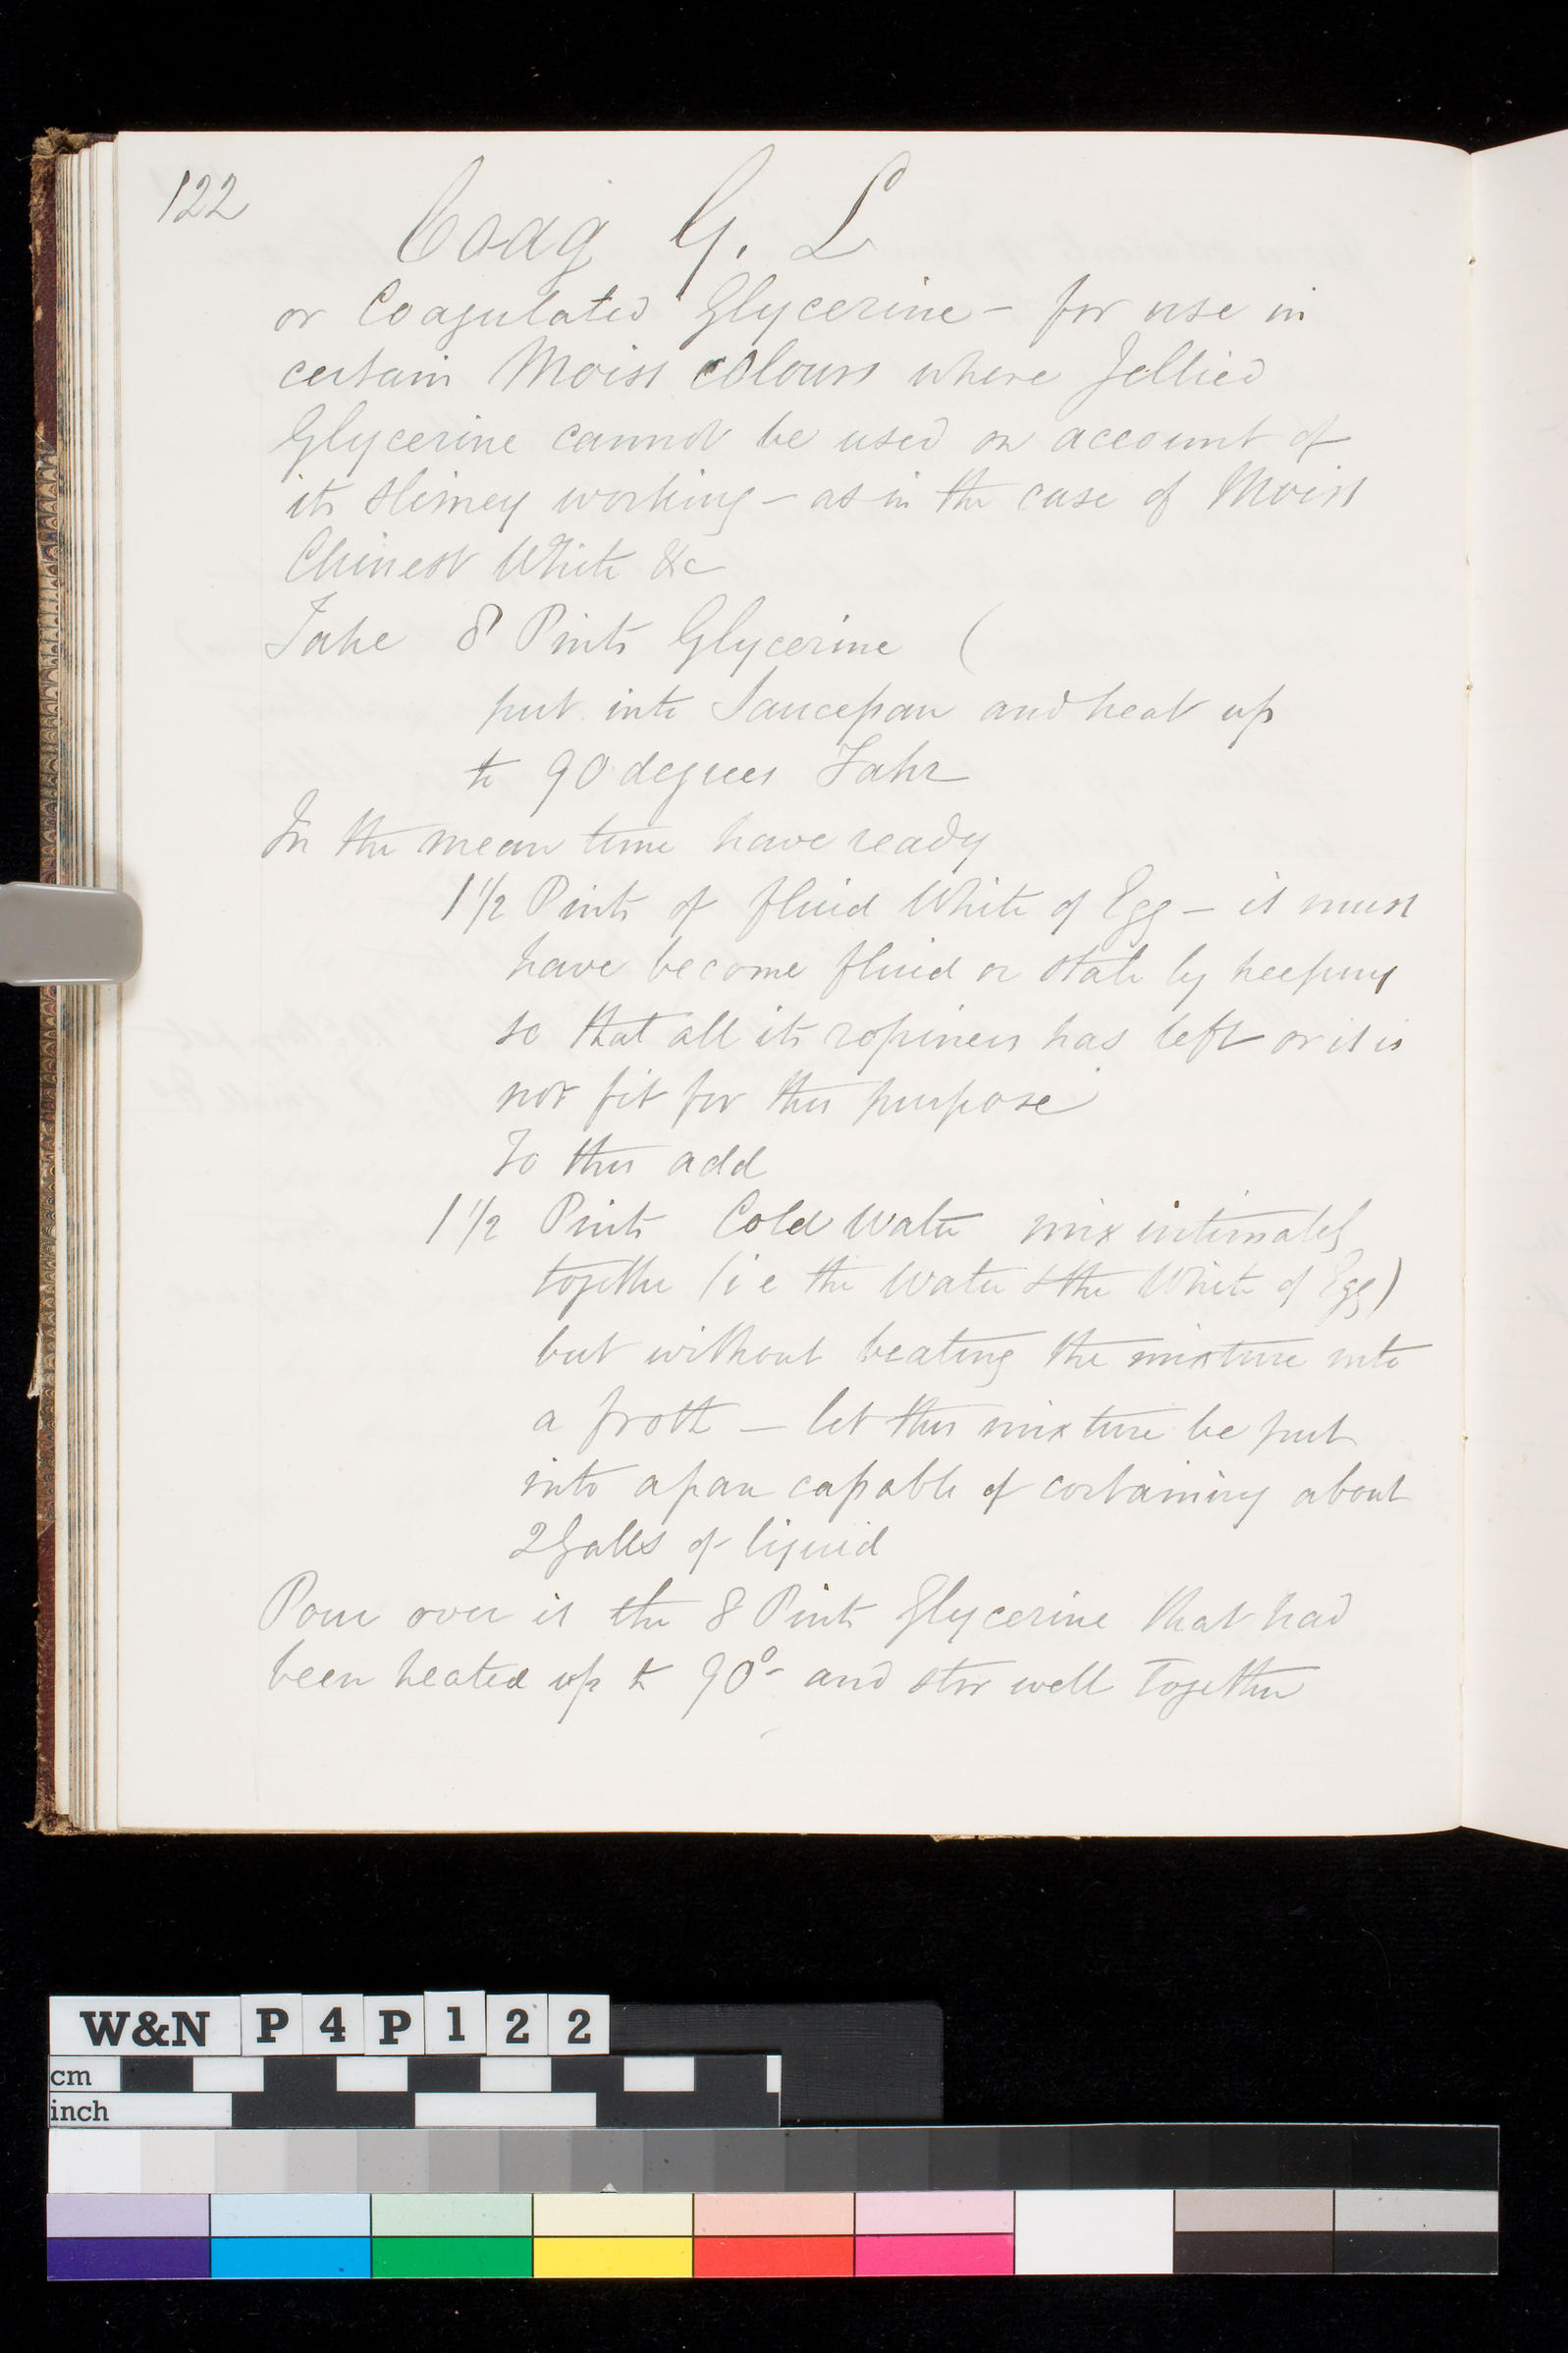 122
Coag G. L
or Coagulated Glycerine - for use in
certain Moist colours where Jellied
Glycerine cannot be used on account of
its slimey working - as in the case of Moist
Chinese White &c
Take 8 Pints Glycerine (
put into Saucepan and heat up
to 90 degrees Fahr
In the mean time have ready
1 1/2 Pints of fluid White of Egg - it must
have become fluid or stale by keeping
so that all its ropiness has left or it is
not fit for this purpose
To this add
1 1/2 Pints Cold Water mix intimately
together (i e the Water & the White of Egg)
but without beating the mixture into
a froth - let this mixture be put
into a pan capable of containing about
2 Galls of liquid
Pour over it the 8 Pints Glycerine that had
been heated up to 90° - and stir well together
W&N P4P122
cm
inch